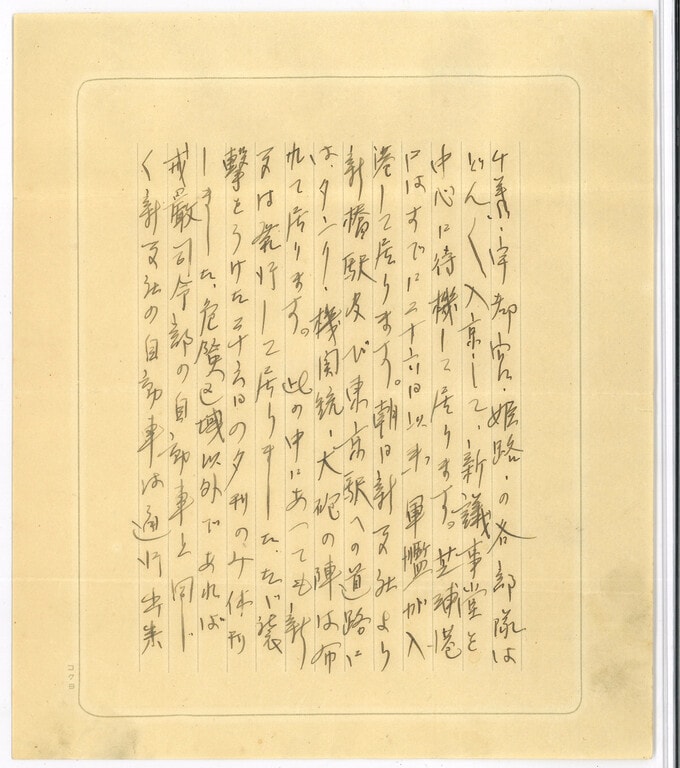 千葉・宇都宮・姫路・の各部隊は
どん〱入京して、新議事堂を
中心に待機して居ります。芝浦港
にはすでに二十六日以来軍艦が入
港して居ります。朝日新文社より
新橋駅及び東京駅への道路に
は、タンク・機関銃・大砲の陣は布
れて居ります。此の中にあっても新
文は発行して居りました、たゞ襲
撃をうけた二十六日の夕刊のみ休刊
しました、危険区域以外であれば
戒厳司令部の自動車と同じ
く新文社の自動車は通行出来